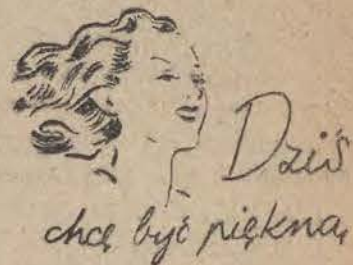 Dziś
chcę być piękną,